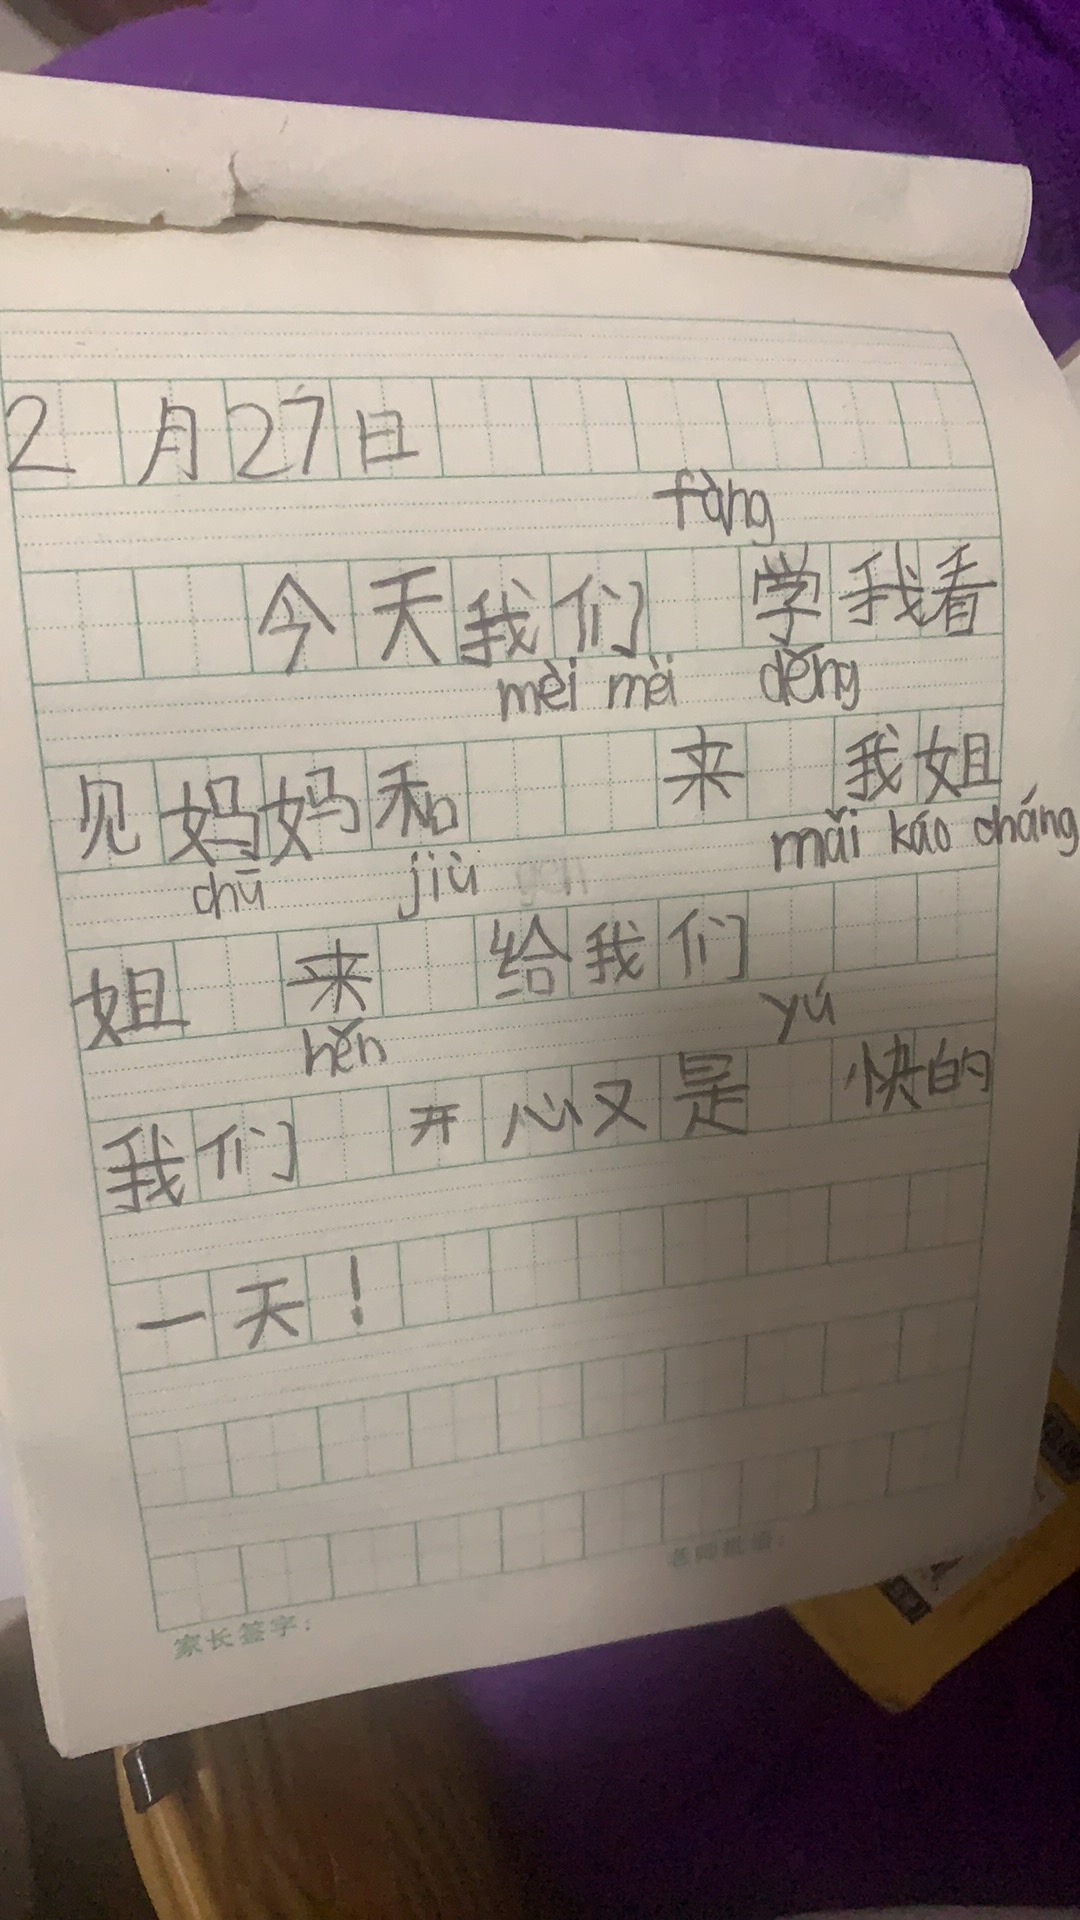 2月27日
fàng
今天我们 学我看
mèi mèi děng
见妈妈和 来 我姐
chū jiù mǎi káo cháng
姐 来 给我们
hěn yú
我们 开心又是 快的
一天！
老师批语:
家长签字: